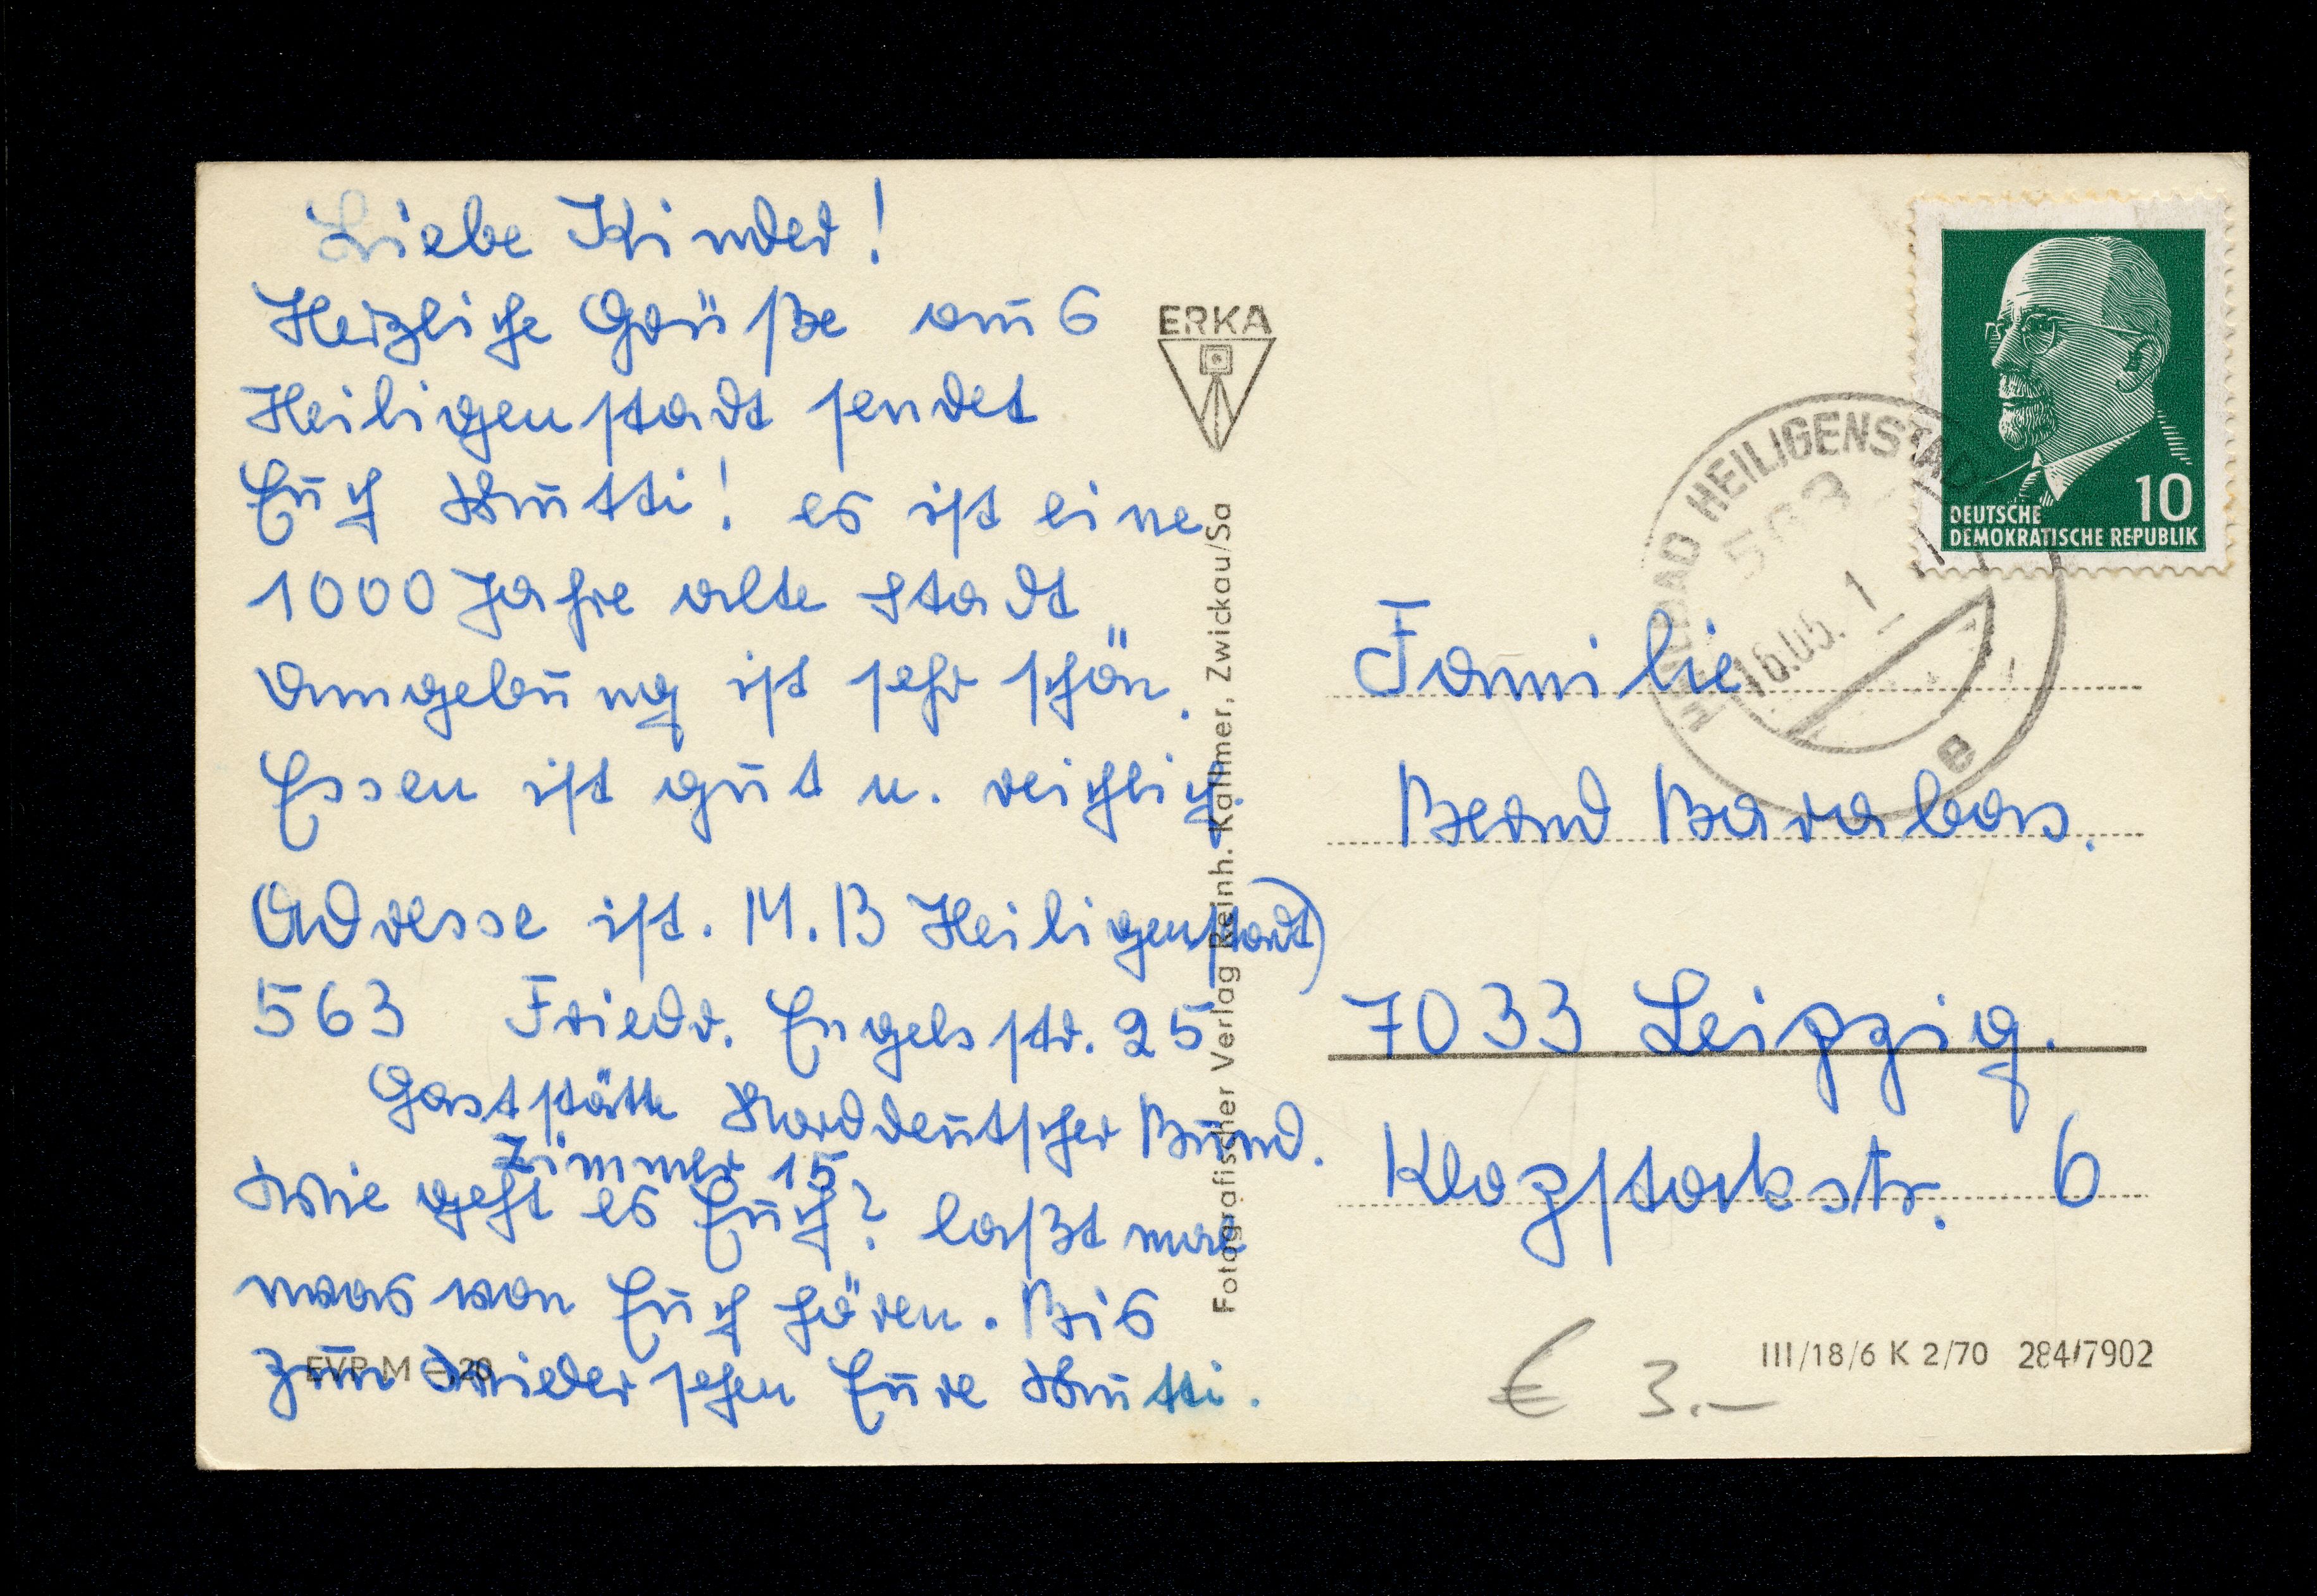 Liebe Kinder!
Herzliche Grüße aus
Heiligenstadt sendet
Euch Mutti! es ist eine
1000 Jahre alte Stadt
Umgebung ist sehr schön.
Essen ist gut u. reichlich.
Adresse ist. M.B Heiligenstadt)
563 Friedr. Engelsstr. 25
Gaststätte Norddeutscher Bund.
Zimmer 15
Wie geht es Euch? laßt mal
was von Euch hören. Bis
zum Wiedersehen Eure Mutti.
EVP M -,20
ERKA
Fotografischer Verlag Reinh. Kallmer, Zwickau/Sa
10
DEUTSCHE
DEMOKRATISCHE REPUBLIK
HEILBAD HEILIGENSTADT
16.05.
e
Familie
Bernd Barabas.
7033 Leipzig.
Klopstockstr. 6
III/18/6 K 2/70 284/7902
€ 3.–